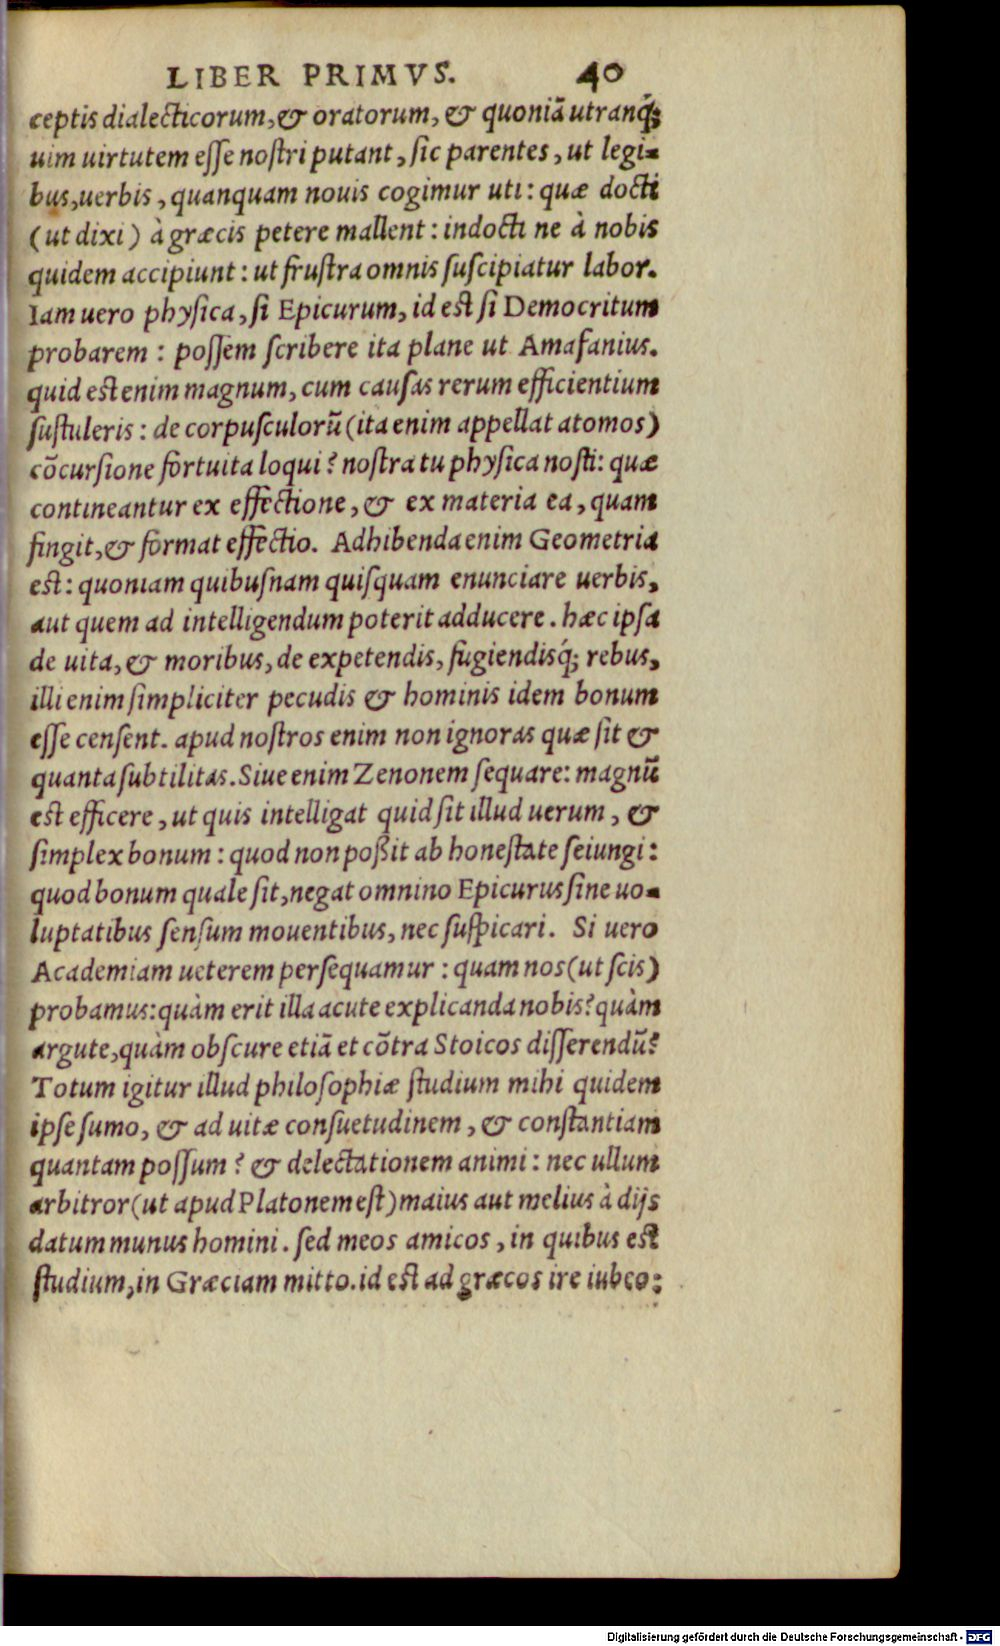 LIBER PRIMVS. 40
ceptis dialecticorum, & oratorum, & quoniã utranq́;
uim uirtutem esse nostri putant, sic parentes, ut legi-
bus, uerbis, quanquam nouis cogimur uti: quæ docti
(ut dixi) à græcis petere mallent: indocti ne à nobis
quidem accipiunt: ut frustra omnis suscipiatur labor.
Iam uero physica, si Epicurum, id est si Democritum
probarem: possem scribere ita plane ut Amafanius.
quid est enim magnum, cum causas rerum efficientium
sustuleris: de corpusculorũ (ita enim appellat atomos)
cõcursione fortuita loqui? nostra tu physica nosti: quæ
contineantur ex effectione, & ex materia ea, quam
fingit, & format effectio. Adhibenda enim Geometria
est: quoniam quibusnam quisquam enunciare uerbis,
aut quem ad intelligendum poterit adducere. hæc ipsa
de uita, & moribus, de expetendis, fugiendisq́; rebus,
illi enim simpliciter pecudis & hominis idem bonum
esse censent. apud nostros enim non ignoras quæ sit &
quanta subtilitas. Siue enim Zenonem sequare: magnũ
est efficere, ut quis intelligat quid sit illud uerum, &
simplex bonum: quod non poßit ab honestate seiungi:
quod bonum quale sit, negat omnino Epicurus sine uo-
luptatibus sensum mouentibus, nec suspicari. Si uero
Academiam ueterem persequamur: quam nos (ut scis)
probamus: quàm erit illa acute explicanda nobis? quàm
argute, quàm obscure etiã et cõtra Stoicos disserendũ?
Totum igitur illud philosophiæ studium mihi quidem
ipse sumo, & ad uitæ consuetudinem, & constantiam
quantam possum? & delectationem animi: nec ullum
arbitror (ut apud Platonem est) maius aut melius à dijs
datum munus homini. sed meos amicos, in quibus est
studium, in Græciam mitto. id est ad græcos ire iubeo:
Digitalisierung gefördert durch die Deutsche Forschungsgemeinschaft - DFG